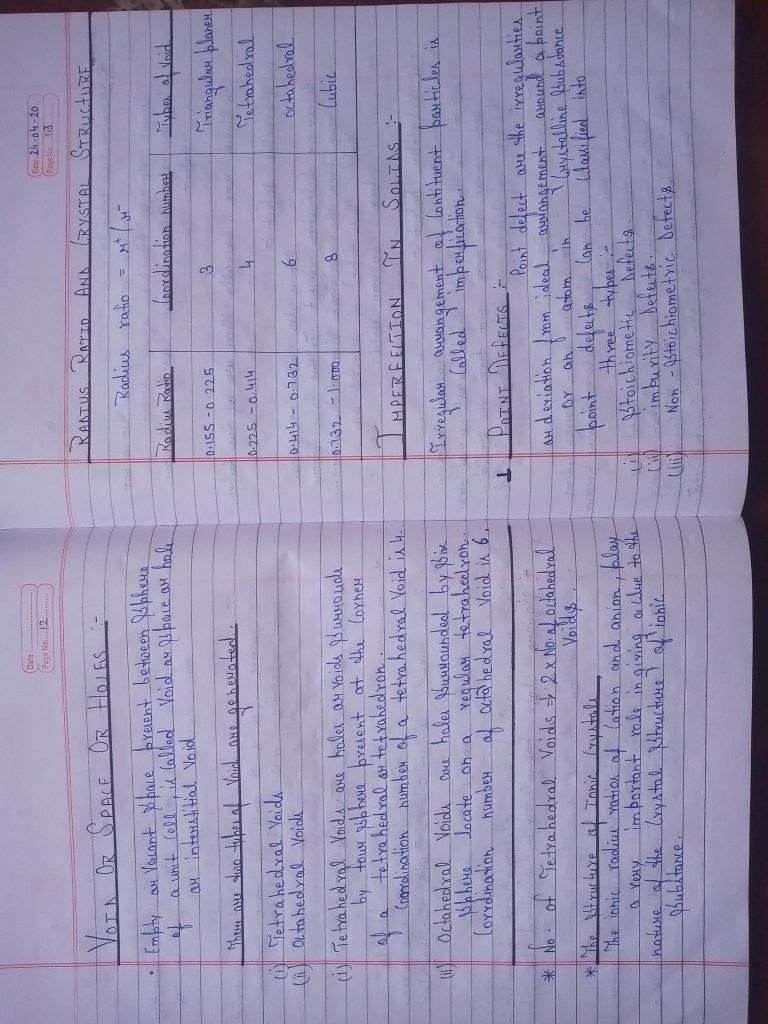 Date ..................
Page No. ....12....
VOID OR SPACE OR HOLES :-
• Empty or Vacant Space present between Sphere
of a unit cell, is called Void or Space or hole
or interstitial Void
There are two types of Void are generated..
(i) Tetrahedral Voids
(ii) Octahedral Voids
(i) Tetrahedral Voids are holes or voids Surrounds
by four Sphere present at the Corner
of a tetrahedral or tetrahedron.
Coordination number of a tetrahedral Void is 4.
(ii) Octahedral Voids are holes Surrounded by Six
Sphere locate on a regular tetrahedron.
Corrdination number of octahedral Void is 6.
* No. of Tetrahedral Voids ⇒ 2 x No. of octahedral
Voids.
* The Structure of Ionic Crystals
The ionic radius ratios of Cation and anion, play
a very important role in giving a clue to the
nature of the Crystal Structure of ionic
Substance.
Date 24-04-20
Page No. 13
RADIUS RATIO AND CRYSTAL STRUCTURE
Radius ratio = r+/r-
Radius Ratio Coordination number Types of Void
0.155-0.225 3 Triangular planer
0.225-0.414 4 Tetrahedral
0.414-0.732 6 octahedral
0.732-1.000 8 Cubic
IMPERFECTION IN SOLIDS :-
Irregular arrangement of Contituent particles is
Called imperfication.
↓ POINT DEFECTS :-
Point defect are the irregularities
or deriation from ideal arrangement around a point
or an atom in Crystalline Substance
point defects Can be Classified into
three types :-
(i) Stoichiometic Defects.
(ii) imburity Defects.
(iii) Non-Stoichiometric Defects.